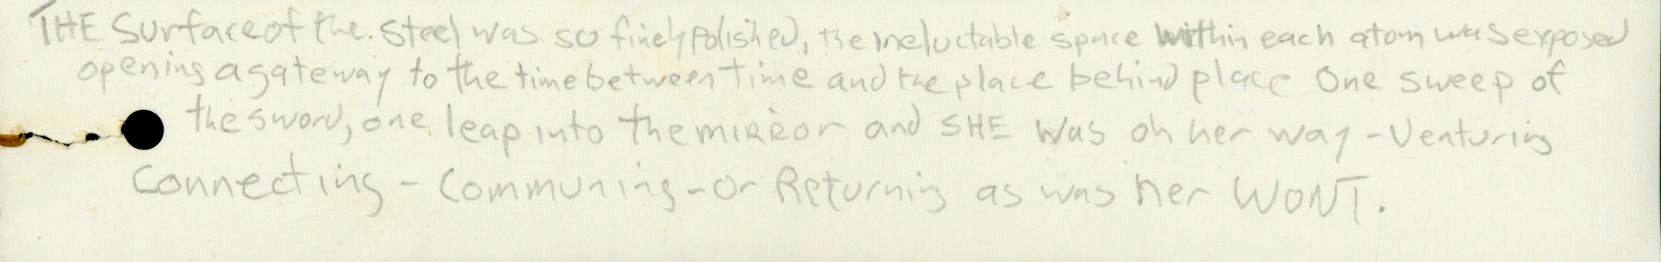 THE Surface of the steel was so finely polished, the ineluctable space within each atom was exposed
opening a gateway to the time between time and the place behind place One sweep of
the sword, one leap into the mirror and SHE was on her way - Venturing
Connecting - Communing - or Returning as was her WONT.